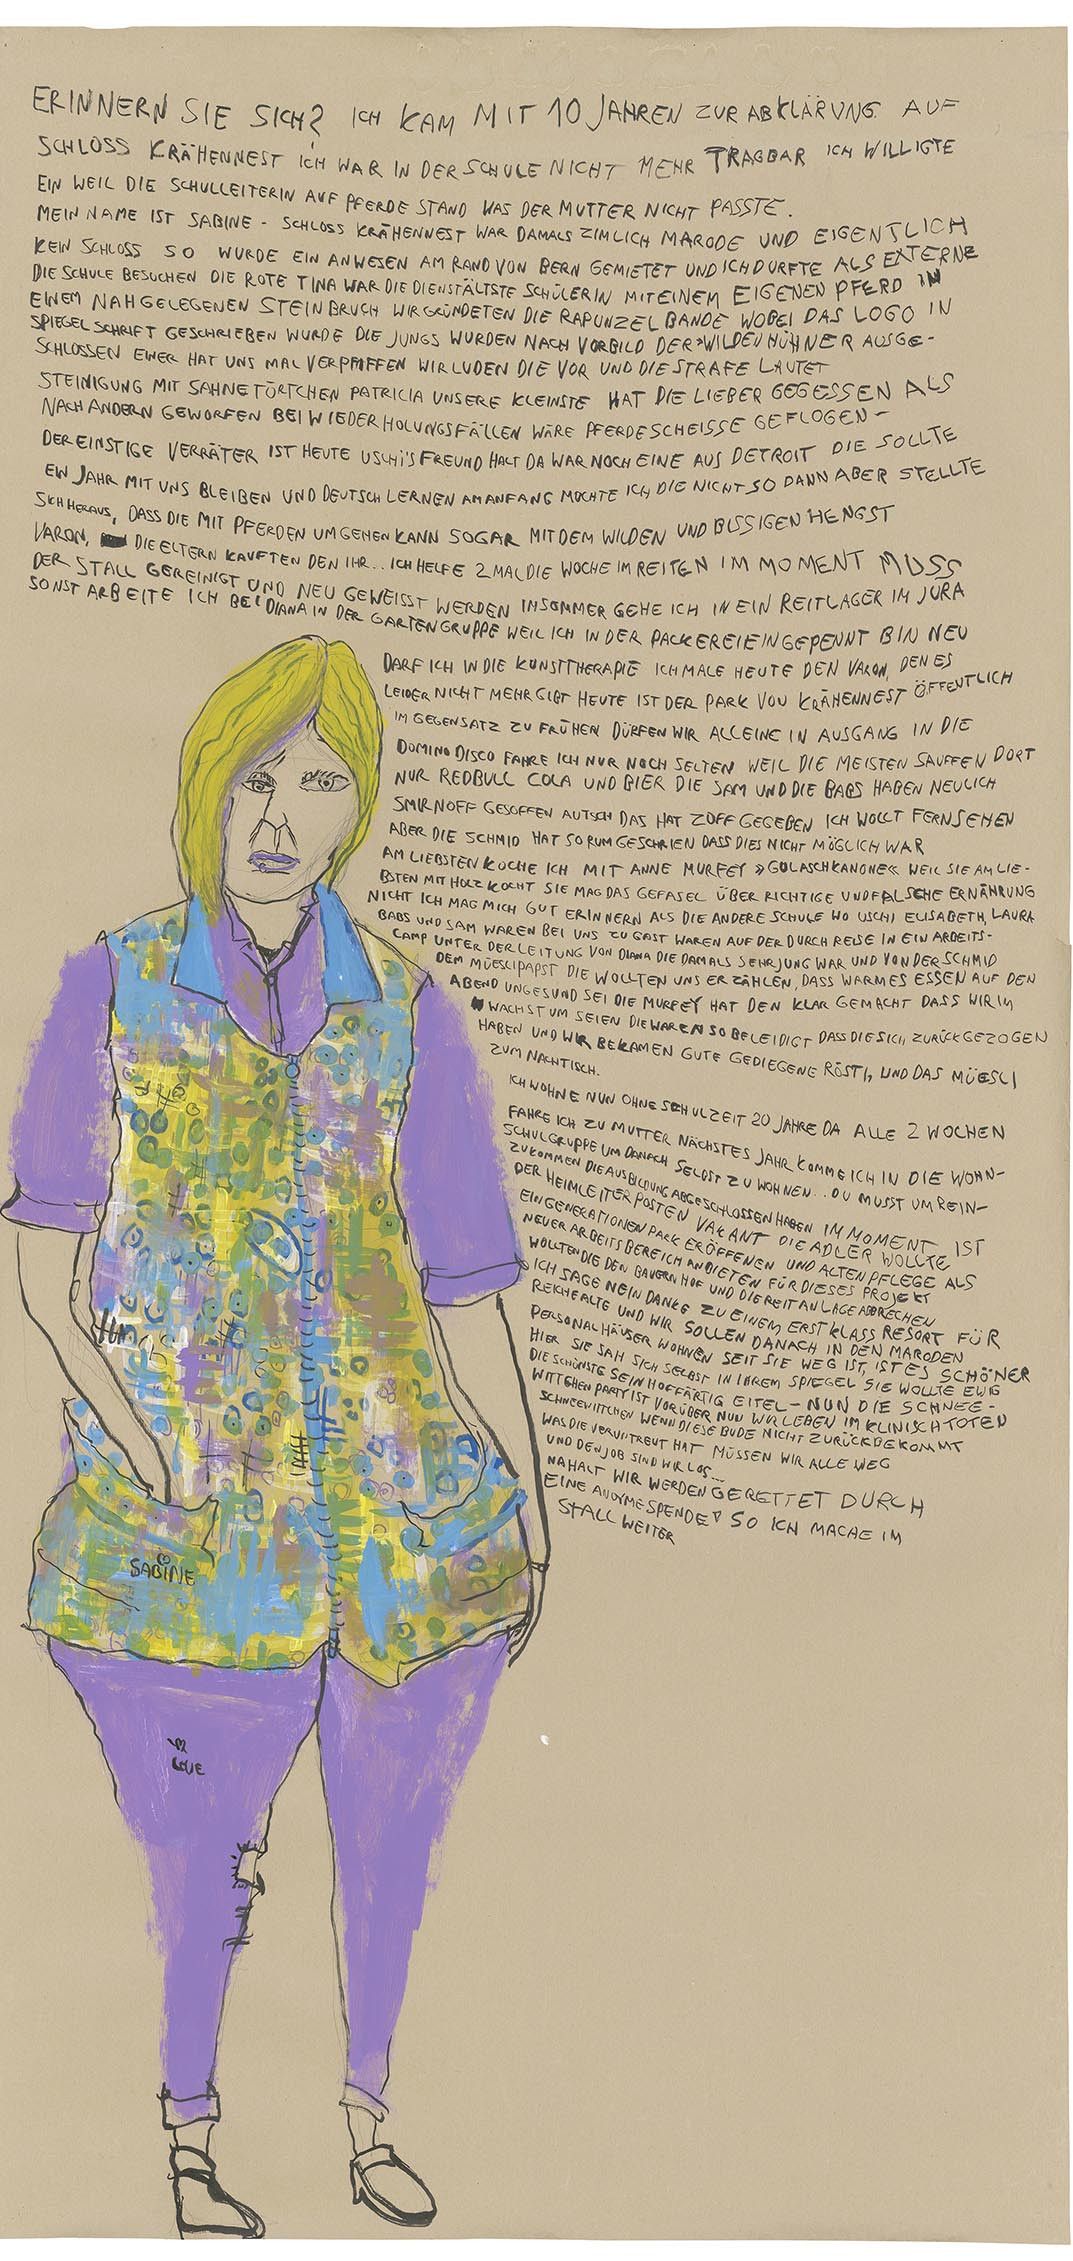 ERINNERN SIE SICH? ICH KAM MIT 10 JAHREN ZUR ABKLÄRUNG AUF
SCHLOSS KRÄHENNEST ICH WAR IN DER SCHULE NICHT MEHR TRAGBAR ICH WILLIGTE
EIN WEIL DIE SCHULLEITERIN AUF PFERDE STAND WAS DER MUTTER NICHT PASSTE.
MEIN NAME IST SABINE - SCHLOSS KRÄHENNEST WAR DAMALS ZIMLICH MARODE UND EIGENTLICH
KEIN SCHLOSS SO WURDE EIN ANWESEN AM RAND VON BERN GEMIETET UND ICH DURFTE ALS EXTERNE
DIE SCHULE BESUCHEN DIE ROTE TINA WAR DIE DIENSTÄLTSTE SCHÜLERIN MIT EINEM EIGENEN PFERD IN
EINEM NAHGELEGENEN STEINBRUCH WIR GRÜNDETEN DIE RAPUNZEL BANDE WOBEI DAS LOGO IN
SPIEGELSCHRIFT GESCHRIEBEN WURDE DIE JUNGS WURDEN NACH VORBILD DER »WILDEN HÜHNER AUSGE-
SCHLOSSEN EINER HAT UNS MAL VERPFIFFEN WIR LUDEN DIE VOR UND DIE STRAFE LAUTET
STEINIGUNG MIT SAHNETÖRTCHEN PATRICIA UNSERE KLEINSTE HAT DIE LIEBER GEGESSEN ALS
NACH ANDERN GEWORFEN BEI WIEDERHOLUNGSFÄLLEN WÄRE PFERDESCHEISSE GEFLOGEN -
DER EINSTIGE VERRÄTER IST HEUTE USCHI'S FREUND HALT DA WAR NOCH EINE AUS DETROIT DIE SOLLTE
EIN JAHR MIT UNS BLEIBEN UND DEUTSCH LERNEN AM ANFANG MOCHTE ICH DIE NICHT SO DANN ABER STELLTE
SICH HERAUS, DASS DIE MIT PFERDEN UMGEHEN KANN SOGAR MIT DEM WILDEN UND BISSIGEN HENGST
VARON, DIE ELTERN KAUFTEN DEN IHR.. ICH HELFE 2 MAL DIE WOCHE IM REITEN IM MOMENT MUSS
DER STALL GEREINIGT UND NEU GEWEISST WERDEN IM SOMMER GEHE ICH IN EIN REITLAGER IM JURA
SONST ARBEITE ICH BEI DIANA IN DER GARTENGRUPPE WEIL ICH IN DER PACKEREI EINGEPENNT BIN NEU
DARF ICH IN DIE KUNSTTHERAPIE ICH MALE HEUTE DEN VARON, DEN ES
LEIDER NICHT MEHR GIBT HEUTE IST DER PARK VON KRÄHENNEST ÖFFENTLICH
IM GEGENSATZ ZU FRÜHER DÜRFEN WIR ALLEINE IN AUSGANG IN DIE
DOMINO DISCO FAHRE ICH NUR NOCH SELTEN WEIL DIE MEISTEN SAUFEN DORT
NUR REDBULL COLA UND BIER DIE SAM UND DIE BABS HABEN NEULICH
SMIRNOFF GESOFFEN AUTSCH DAS HAT ZOFF GEGEBEN ICH WOLLT FERNSEHEN
ABER DIE SCHMID HAT SO RUM GESCHRIEN DASS DIES NICHT MÖGLICH WAR
AM LIEBSTEN KOCHE ICH MIT ANNE MURFEY »GULASCHKANONE« WEIL SIE AM LIE-
BSTEN MIT HOLZ KOCHT SIE MAG DAS GEFASEL ÜBER RICHTIGE UND FALSCHE ERNÄHRUNG
NICHT ICH MAG MICH GUT ERINNERN ALS DIE ANDERE SCHULE WO USCHI ELISABETH, LAURA
BABS UND SAM WAREN BEI UNS ZU GAST WAREN AUF DER DURCH REISE IN EIN ARBEITS-
CAMP UNTER DER LEITUNG VON DIANA DIE DAMALS SEHR JUNG WAR UND VON DER SCHMID
DEM MÜESLIPAPST DIE WOLLTEN UNS ERZÄHLEN, DASS WARMES ESSEN AUF DEN
ABEND UNGESUND SEI DIE MURFEY HAT DEN KLAR GEMACHT DASS WIR IM
WACHSTUM SEIEN DIE WAREN SO BELEIDIGT DASS DIE SICH ZURÜCKGEZOGEN
HABEN UND WIR BEKAMEN GUTE GEDIEGENE RÖSTI, UND DAS MÜESLI
ZUM NACHTISCH.
ICH WOHNE NUN OHNE SCHULZEIT 20 JAHRE DA ALLE 2 WOCHEN
FAHRE ICH ZU MUTTER NÄCHSTES JAHR KOMME ICH IN DIE WOHN-
SCHULGRUPPE UM DANACH SELBST ZU WOHNEN... DU MUSST UM REIN-
ZUKOMMEN DIE AUSBILDUNG ABGESCHLOSSEN HABEN IM MOMENT IST
DER HEIMLEITERPOSTEN VAKANT DIE ADLER WOLLTE
EIN GENERATIONENPARK ERÖFFENEN UND ALTENPFLEGE ALS
NEUER ARBEITSBEREICH ANBIETEN FÜR DIESES PROJEKT
WOLLTEN DIE DEN BAUERNHOF UND DIE REITANLAGE ABBRECHEN
ICH SAGE NEIN DANKE ZU EINEM ERSTKLASS RESORT FÜR
REICHE ALTE UND WIR SOLLEN DANACH IN DEN MARODEN
PERSONALHÄUSER WOHNEN SEIT SIE WEG IST, IST ES SCHÖNER
HIER SIE SAH SICH SELBST IN IHREM SPIEGEL SIE WOLLTE EWIG
DIE SCHÖNSTE SEIN HOFFÄRTIG EITEL - NUN DIE SCHNEE-
WITTCHEN PARTY IST VORÜBER NUN WIR LEBEN IM KLINISCH TOTEN
SCHNEEVITTCHEN WENN DIESE BUDE NICHT ZURÜCKBEKOMMT
WAS DIE VERUNTREUT HAT MÜSSEN WIR ALLE WEG
UND DEN JOB SIND WIR LOS...
NAHALT WIR WERDEN GERETTET DURCH
EINE ANONYME SPENDE! SO ICH MACHE IM
STALL WEITER
SABINE
LOVE